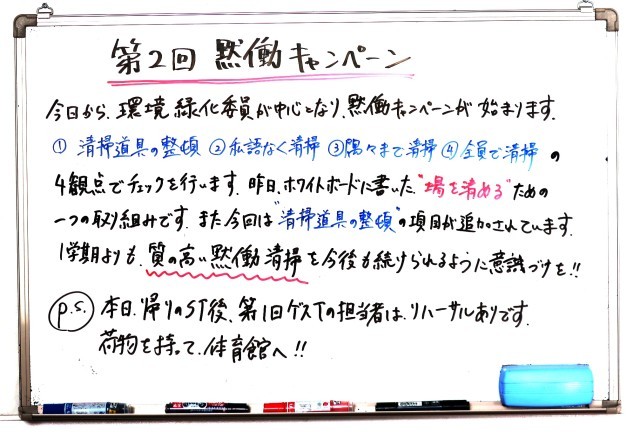 第2回 黙働キャンペーン
今日から、環境緑化委員が中心となり、黙働キャンペーンが始まります。
① 清掃道具の整頓 ② 私語なく清掃 ③ 隅々まで清掃 ④ 全員で清掃 の
4観点でチェックを行います。昨日、ホワイトボードに書いた、"場を清める"ための
一つの取り組みです。また今回は"清掃道具の整頓"の項目が追加されています。
1学期よりも、質の高い黙働清掃を今後も続けられるように意識づけを!!
P.S. 本日、帰りのST後、第1回ゲスTの担当者は、リハーサルありです。
荷物を持って、体育館へ!!